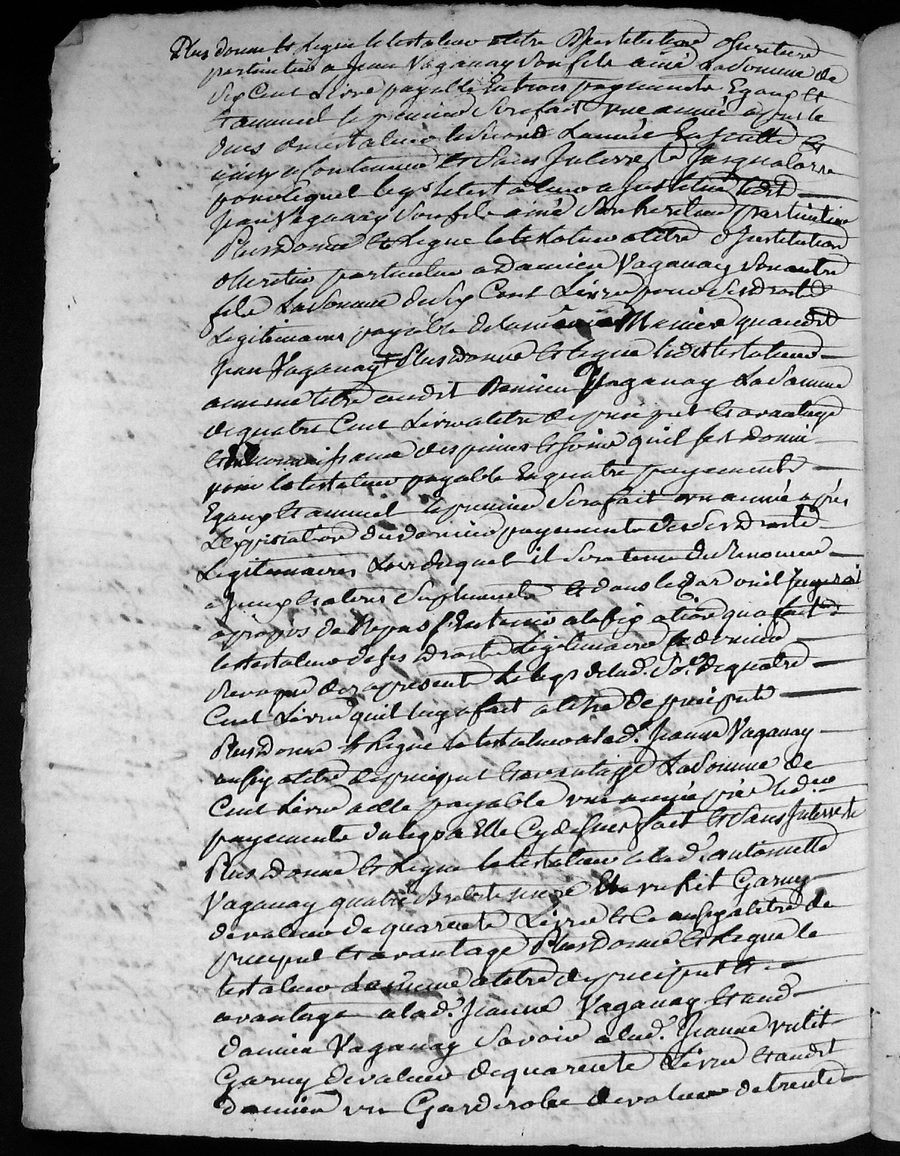 Plus donne et legue le testateur a titre d'institution d'heritier
particulier a Jean Vaganay son fils ainé La Somme de
Six Cent Livre payable En trois payements Egaux et
et annuel le premier Sera fait une année apres le
deces du testateur le Second L'année
ainsy a Continuer et Sans Interres
pour lequel legs le testateur a Institué ledit
Jean Vaganay Son fils ainé Son heritier particulier
Plus donne et Legue le testateur a titre d'Institution
d'heritier particulier a Damien Vaganay Son autre
fils La Somme de Six Cent Livre pour Ses droits
Legitimaires payable de la même Maniere quaudit
Jean Vaganay Plus donne et legue ledit testateur
a meme titre audit Damien Vaganay La Somme
de quatre Cent Livre a titre de preciput et avantage
et reconnaissance des peines et soins quil s'est donné
pour le testateur payable En quatre payements
Egaux et annuel le premier Sera fait une année apres
L'Expiration du dernier payement de Ses droits
Legitimaires Lors duquel il Sera tenu de Renoncer
a Supplement et dans le Cas ou il Jugerait
a propos de Repas a la fixation qua fait
le testateur de Ses droits Legitimaire Ce dernier
Revoque des apresent le legs de lad. So.e de quatre
Cent Livre quil luy a fait a titre de preciput
Plus donne et Legue le testateur a lad. Jeanne Vaganay
aussy a titre de preciput et avantage La Somme de
Cent Livre a elle payable une année après le d.er
payement du legs a Elle Cy dessus fait et Sans Interrests
Plus donne et Legue le testateur a lad. antoinette
Vaganay quatre Brebis mere et un lit Garny
de valeur de quarente Livre et Ce aussy a titre de
preciput et avantage Plus donne et Legue le
testateur a titre de preciput et
avantage a lad. Jeanne Vaganay et aud.
Damien Vaganay Savoir a lad. Jeanne un lit
Garny de valeur de quarente Livre et audit
Damien un Garderobe de valeur de trente